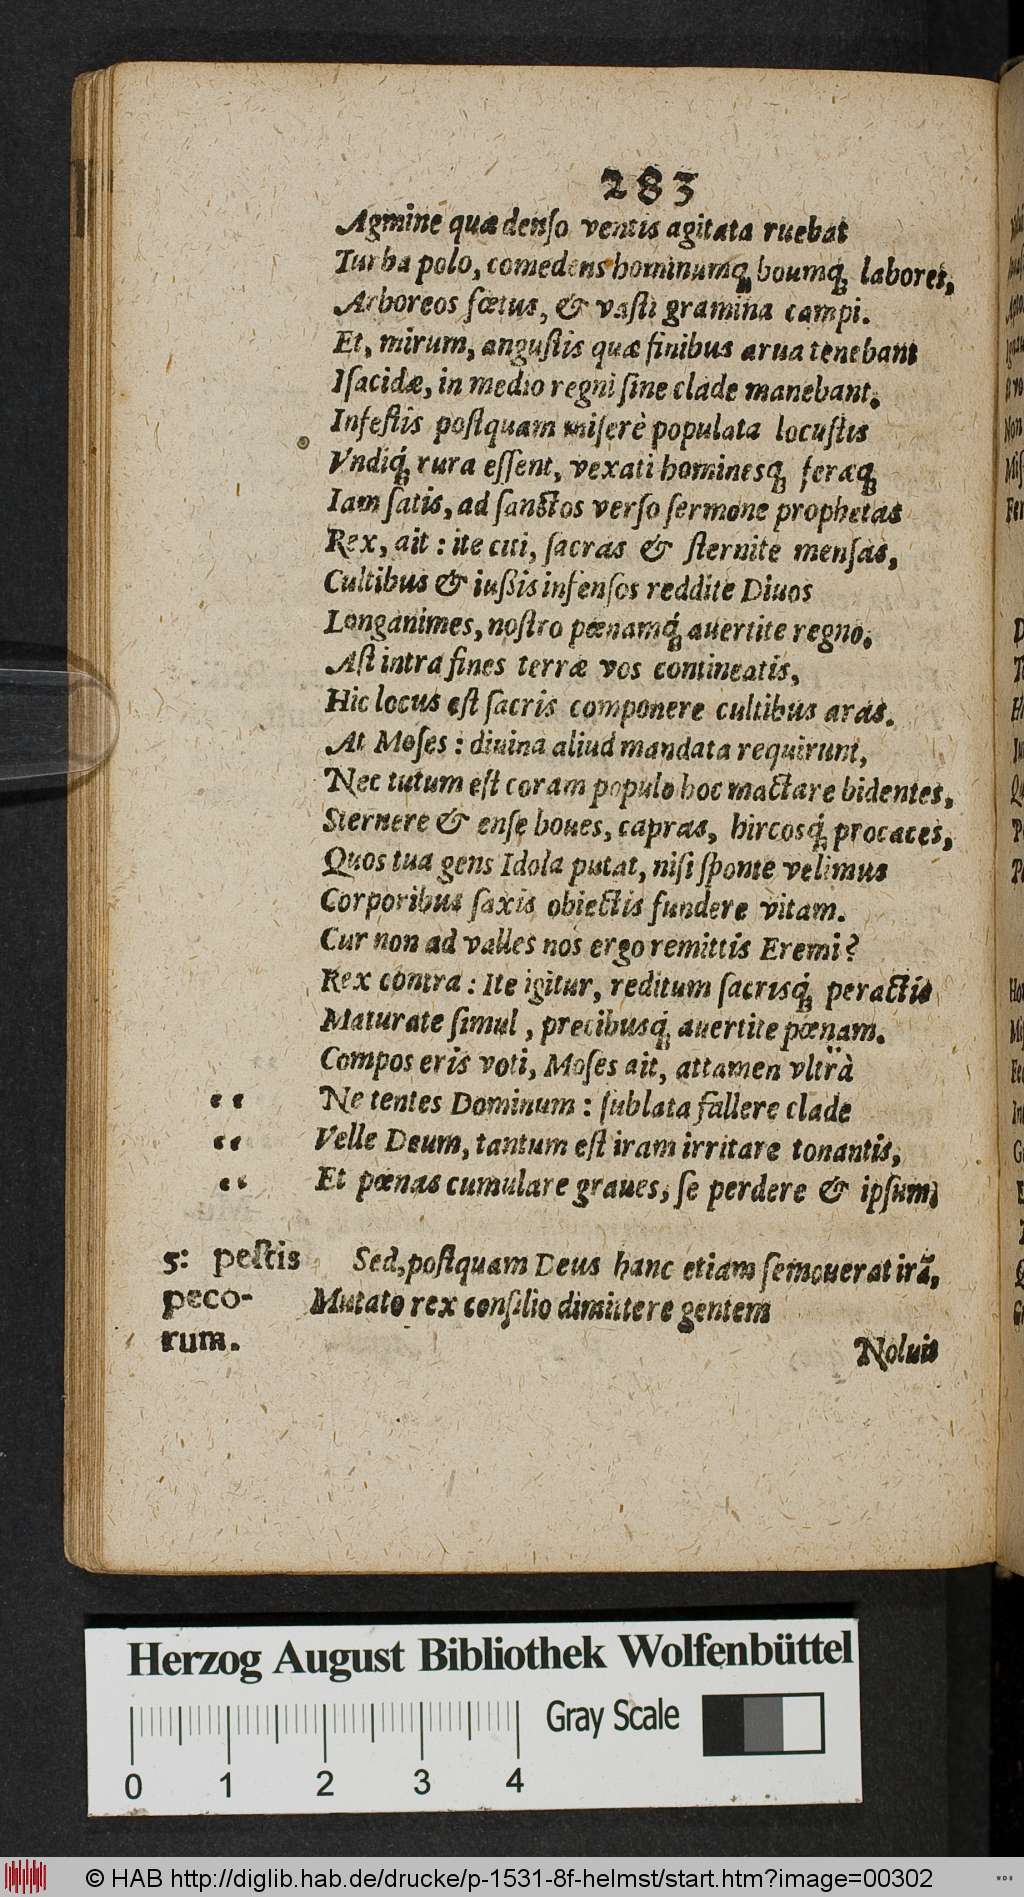 283
Agmine quæ denſo ventis agitata ruebat
Turba polo, comedens hominumq́ boumq́ labores,
Arboreos fœtus, & vaſti gramina campi.
Et, mirum, anguſtis quæ finibus arua tenebant
Iſacidæ, in medio regni ſine clade manebant.
Infeſtis poſtquam miſerè populata locuſtis
Vndiq́ rura eſſent, vexati hominesq́ feræq́
Iam ſatis, ad ſanctos verſo ſermone prophetas
Rex, ait : ite citi, ſacras & ſternite menſas,
Cultibus & iußis infenſos reddite Diuos
Longanimes, noſtro pœnamq́ auertite regno.
Aſt intra fines terræ vos contineatis,
Hic locus eſt ſacris componere cultibus aras.
At Moſes : diuina aliud mandata requirunt,
Nec tutum eſt coram populo hoc mactare bidentes,
Sternere & enſe boues, capras, hircosq́ procaces,
Quos tua gens Idola putat, niſi ſponte velimus
Corporibus ſaxis obiectis fundere vitam.
Cur non ad valles nos ergo remittis Eremi?
Rex contra : Ite igitur, reditum ſacrisq́ peractis
Maturate ſimul, precibusq́ auertite pœnam.
Compos eris voti, Moſes ait, attamen vltrà
“ Ne tentes Dominum : ſublata fallere clade
“ Velle Deum, tantum eſt iram irritare tonantis,
“ Et pœnas cumulare graues, ſe perdere & ipſum.
5: peſtis pecorum.
Sed, poſtquam Deus hanc etiam ſemouerat irã,
Mutato rex conſilio dimittere gentem
Noluis
Herzog August Bibliothek Wolfenbüttel
Gray Scale
0 1 2 3 4
© HAB http://diglib.hab.de/drucke/p-1531-8f-helmst/start.htm?image=00302